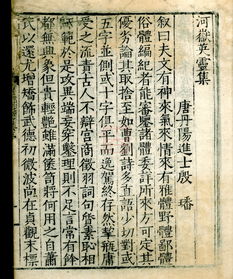 河嶽英靈集
唐丹陽進士殷 璠
叙曰夫文有神來氣來情來有雅體野體鄙體
俗體編紀者能審鑒諸體委詳所來方可定其
優劣論其取捨至如曹劉詩多直語少切對或
五字並側或十字俱平而逸駕終存然挈瓶庸
受之流責古人不辯宮商徵羽詞句質素恥相
師範於是攻異端妄穿鑿理則不足言常有餘
都無興象但貴輕艷雖滿篋笥將何用之自蕭
氏以還尤增矯飾武德初微波尚在貞觀末標